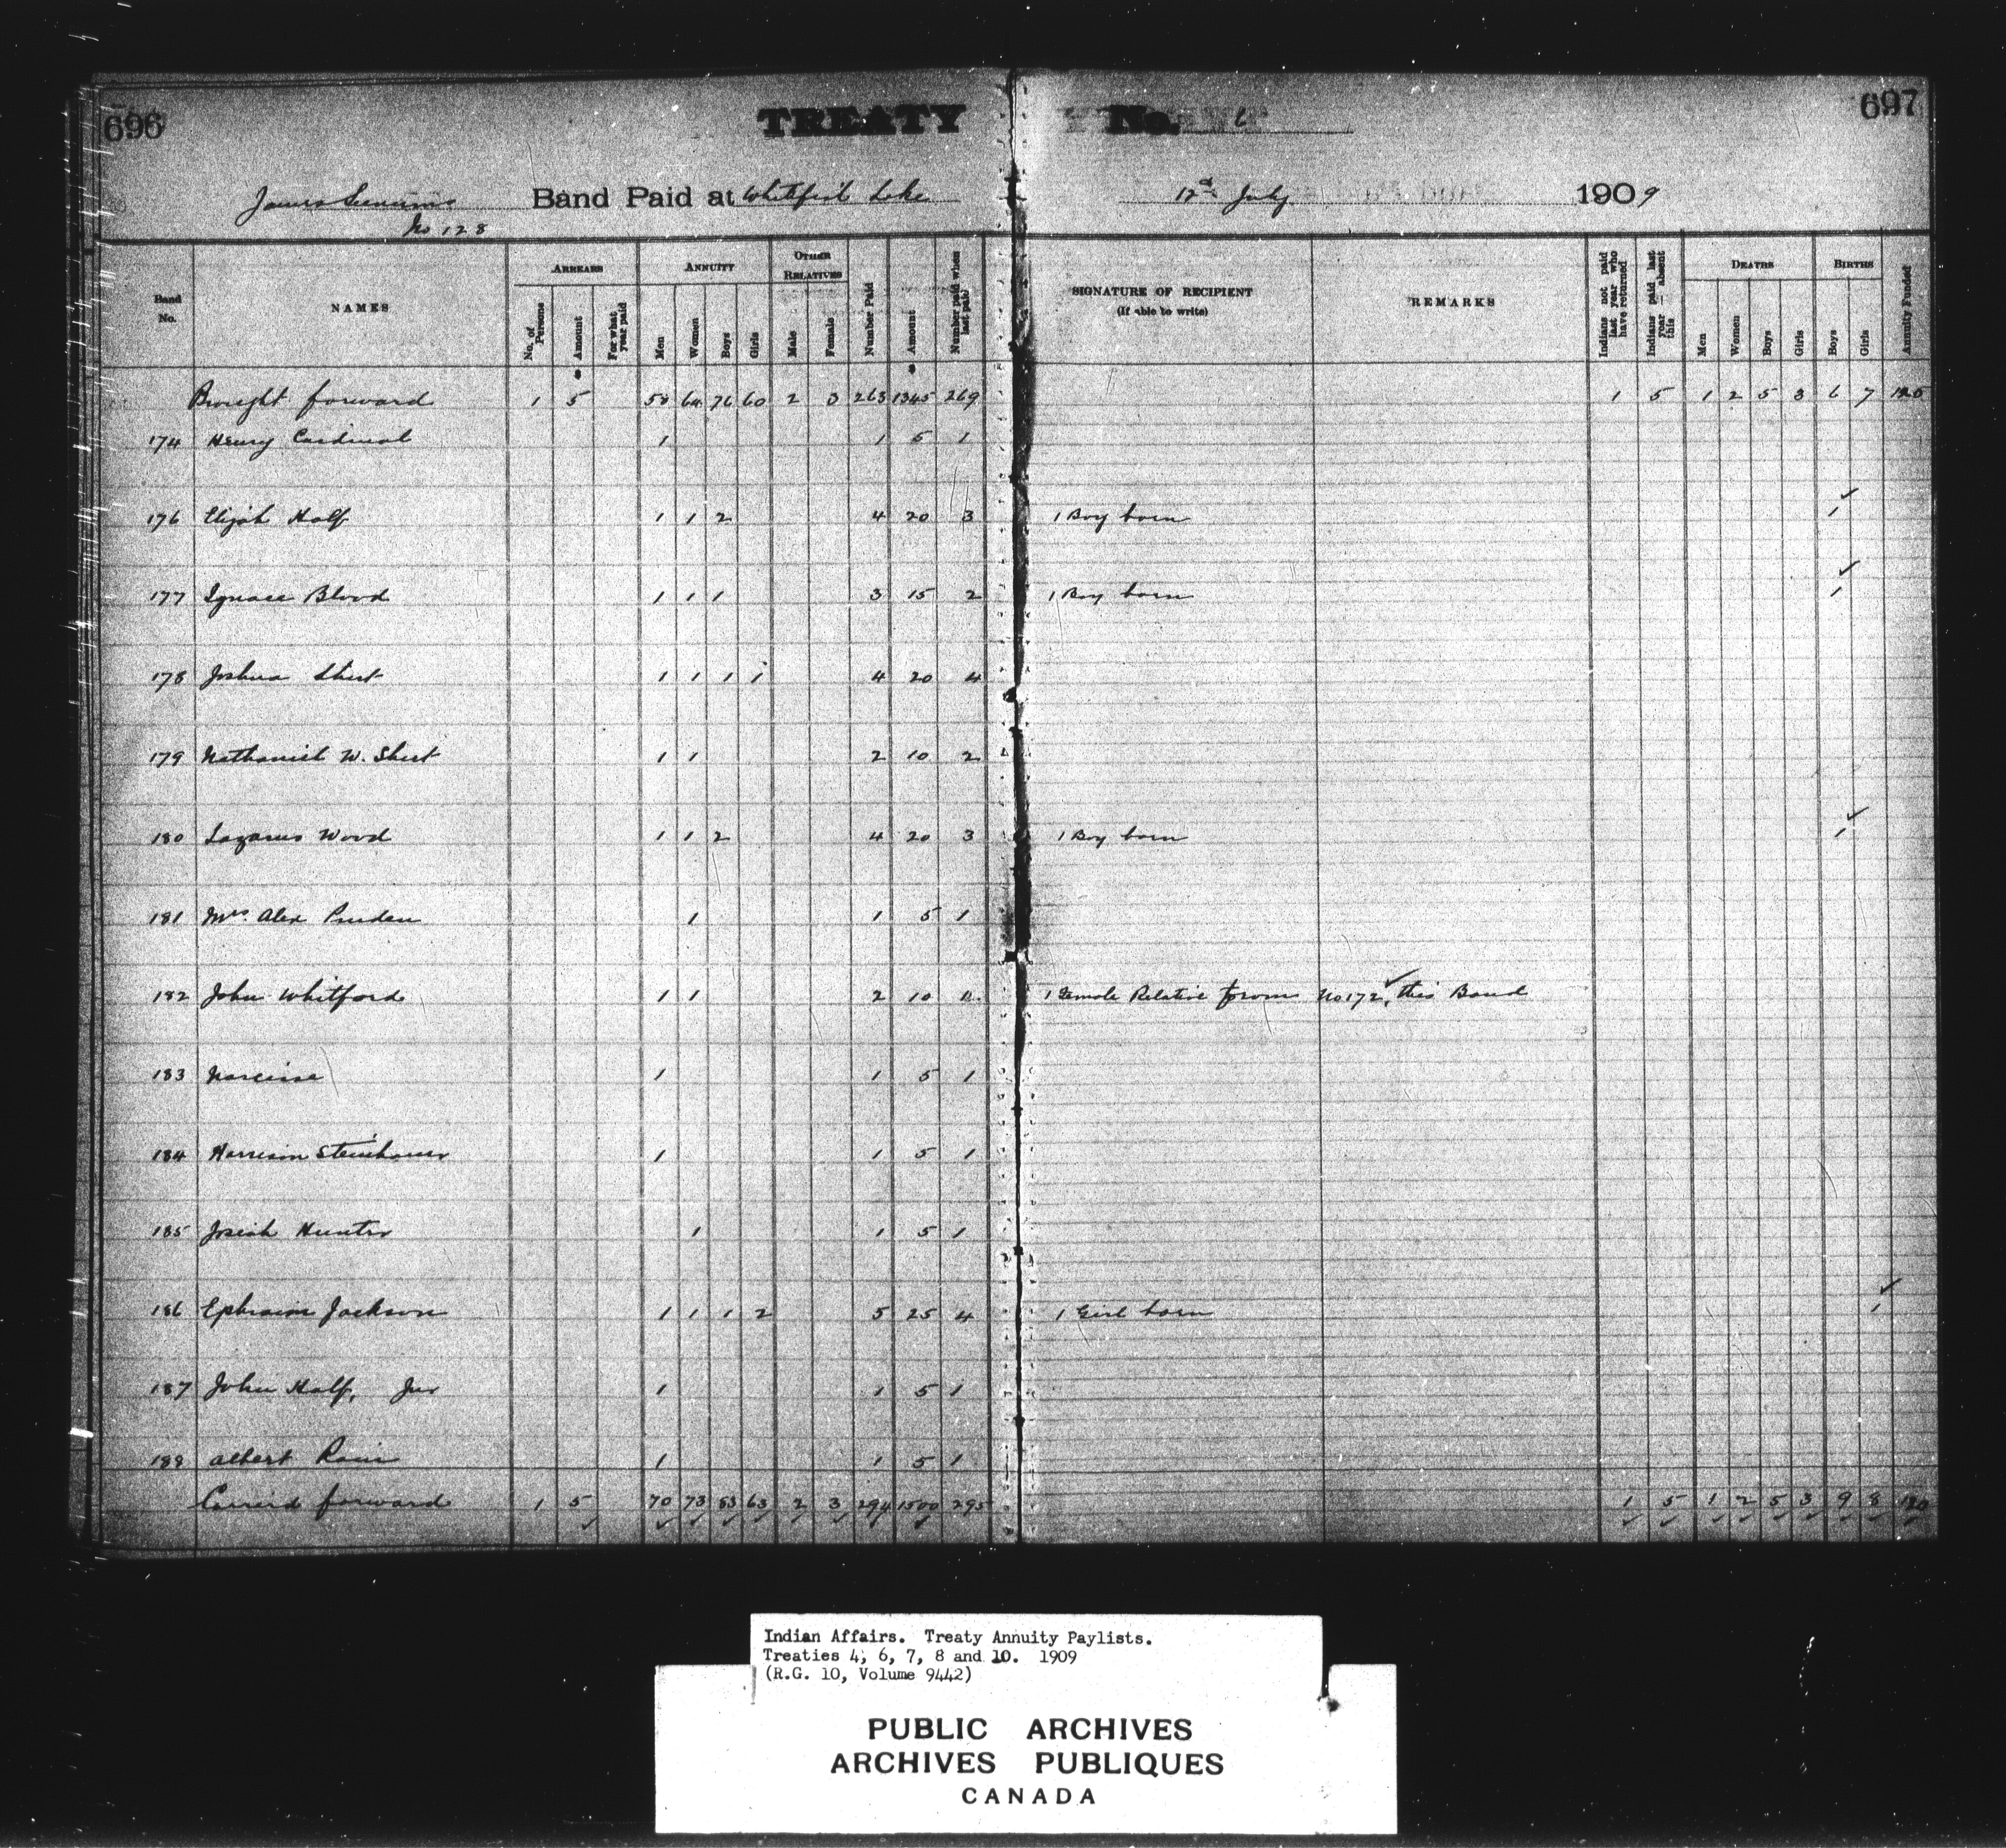 696
TREATY No. 6
697
James Seenum's Band Paid at Whitefish Lake 12th July 1909
No 128
Band No.
NAMES
ARREARS
No. of Persons
Amount
For what year paid
ANNUITY
Men
Women
Boys
Girls
OTHER RELATIVES
Male
Female
Number Paid
Amount
Number paid when last paid
SIGNATURE OF RECIPIENT
(If able to write)
REMARKS
Indians not paid last year who have returned
Indians paid last year — absent this
DEATHS
Men
Women
Boys
Girls
BIRTHS
Boys
Girls
Annuity Funded
Brought forward 1 5 58 64 76 60 2 3 263 1345 269 1 5 1 2 5 3 6 7 120
174 Henry Cardinal 1 1 5 1
176 Elijah Half 1 1 2 4 20 3 1 Boy born 1
177 Ignace Blood 1 1 1 3 15 2 1 Boy born 1
178 Joshua Shirt 1 1 1 1 4 20 4
179 Nathaniel W. Shirt 1 1 2 10 2
180 Lazarus Wood 1 1 2 4 20 3 1 Boy born 1
181 Mrs. Alex Pruden 1 1 5 1
182 John Whitford 1 1 2 10 1 Female Relative from No 172, this Band
183 Narcisse 1 1 5 1
184 Harrison Steinhauer 1 1 5 1
185 Josiah Hunter 1 1 5 1
186 Ephraim Jackson 1 1 1 2 5 25 4 1 Girl born 1
187 John Half, Jnr 1 1 5 1
189 Albert Rain 1 1 5 1
Carried forward 1 5 70 73 83 63 2 3 294 1500 295 1 5 1 2 5 3 9 8 120
Indian Affairs. Treaty Annuity Paylists.
Treaties 4, 6, 7, 8 and 10. 1909
(R.G. 10, Volume 9442)
PUBLIC ARCHIVES
ARCHIVES PUBLIQUES
CANADA